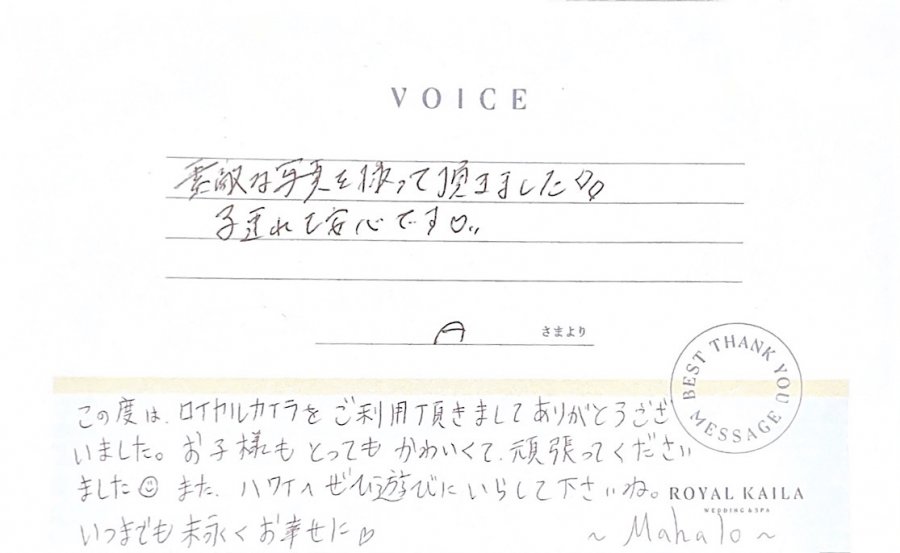 VOICE
素敵な写真を撮って頂きました♡♡
子連れでも安心です♡..
A さまより
BEST THANK YOU MESSAGE
この度は、ロイヤルカイラをご利用頂きましてありがとうござ
いました。お子様もとってもかわいくて、頑張ってください
ました☺ また、ハワイへぜひ遊びにいらして下さいね。
ROYAL KAILA
WEDDING & SPA
いつまでも末永くお幸せに♡
~ Mahalo ~